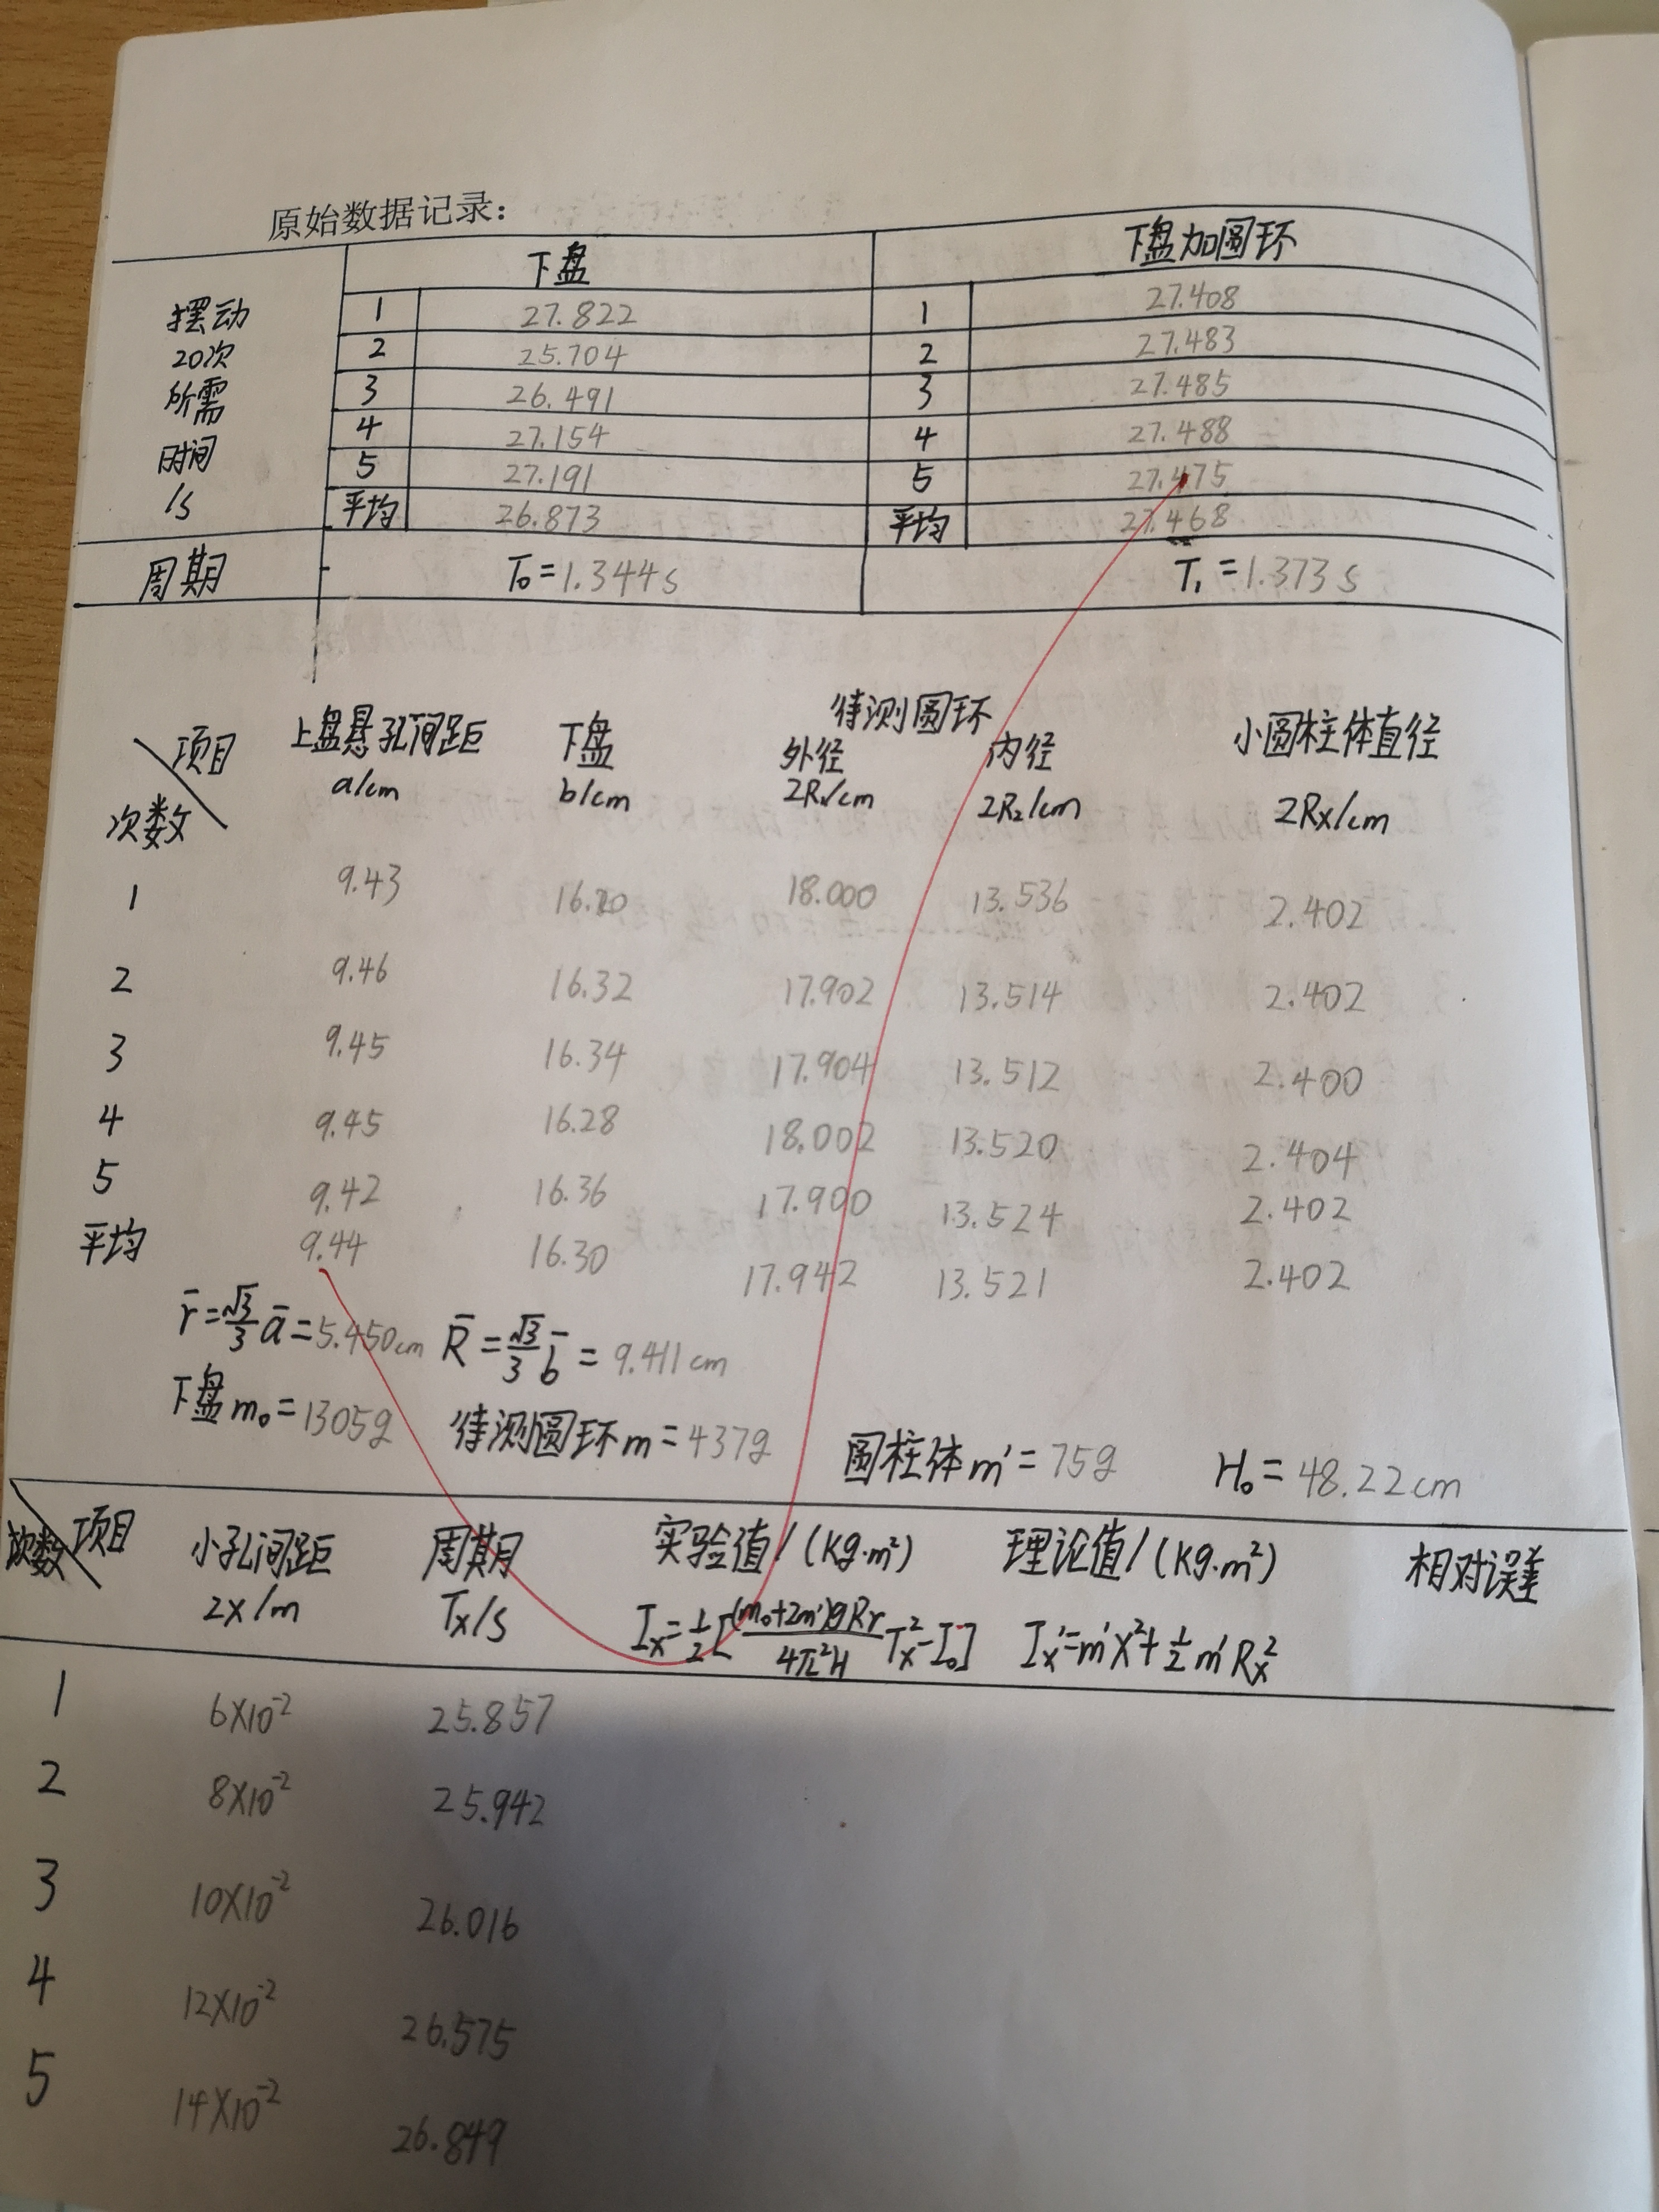 原始数据记录:
下盘 下盘加圆环
摆动 1 27.822 1 27.408
20次 2 25.704 2 27.483
所需 3 26.491 3 27.485
时间 4 27.154 4 27.488
/s 5 27.191 5 27.475
平均 26.873 平均 27.468
周期 T₀=1.344s T₁=1.373s
待测圆环
项目 上盘悬孔间距 下盘 外径 内径 小圆柱体直径
次数 a/cm b/cm 2R₁/cm 2R₂/cm 2Rx/cm
1 9.43 16.20 18.000 13.536 2.402
2 9.46 16.32 17.902 13.514 2.402
3 9.45 16.34 17.904 13.512 2.400
4 9.45 16.28 18.002 13.520 2.404
5 9.42 16.36 17.900 13.524 2.402
平均 9.44 16.30 17.942 13.521 2.402
r̄=√3/3 ā=5.450cm R̄=√3/3 b̄=9.411cm
下盘m₀=1305g 待测圆环m=437g 圆柱体m'=75g H₀=48.22cm
次数 项目 小孔间距 周期 实验值/(Kg·m²) 理论值/(Kg·m²) 相对误差
2x/m Tx/s Ix=1/2[(m₀+2m')gRr/4π²H Tx²-I₀] Ix'=m'x²+1/2m'Rx²
1 6×10⁻² 25.857
2 8×10⁻² 25.942
3 10×10⁻² 26.016
4 12×10⁻² 26.575
5 14×10⁻² 26.849